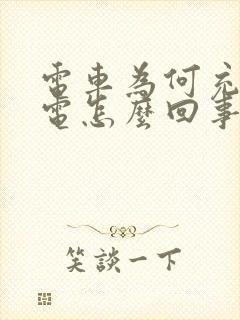 電車為何充
電怎麼回事
笑談一下